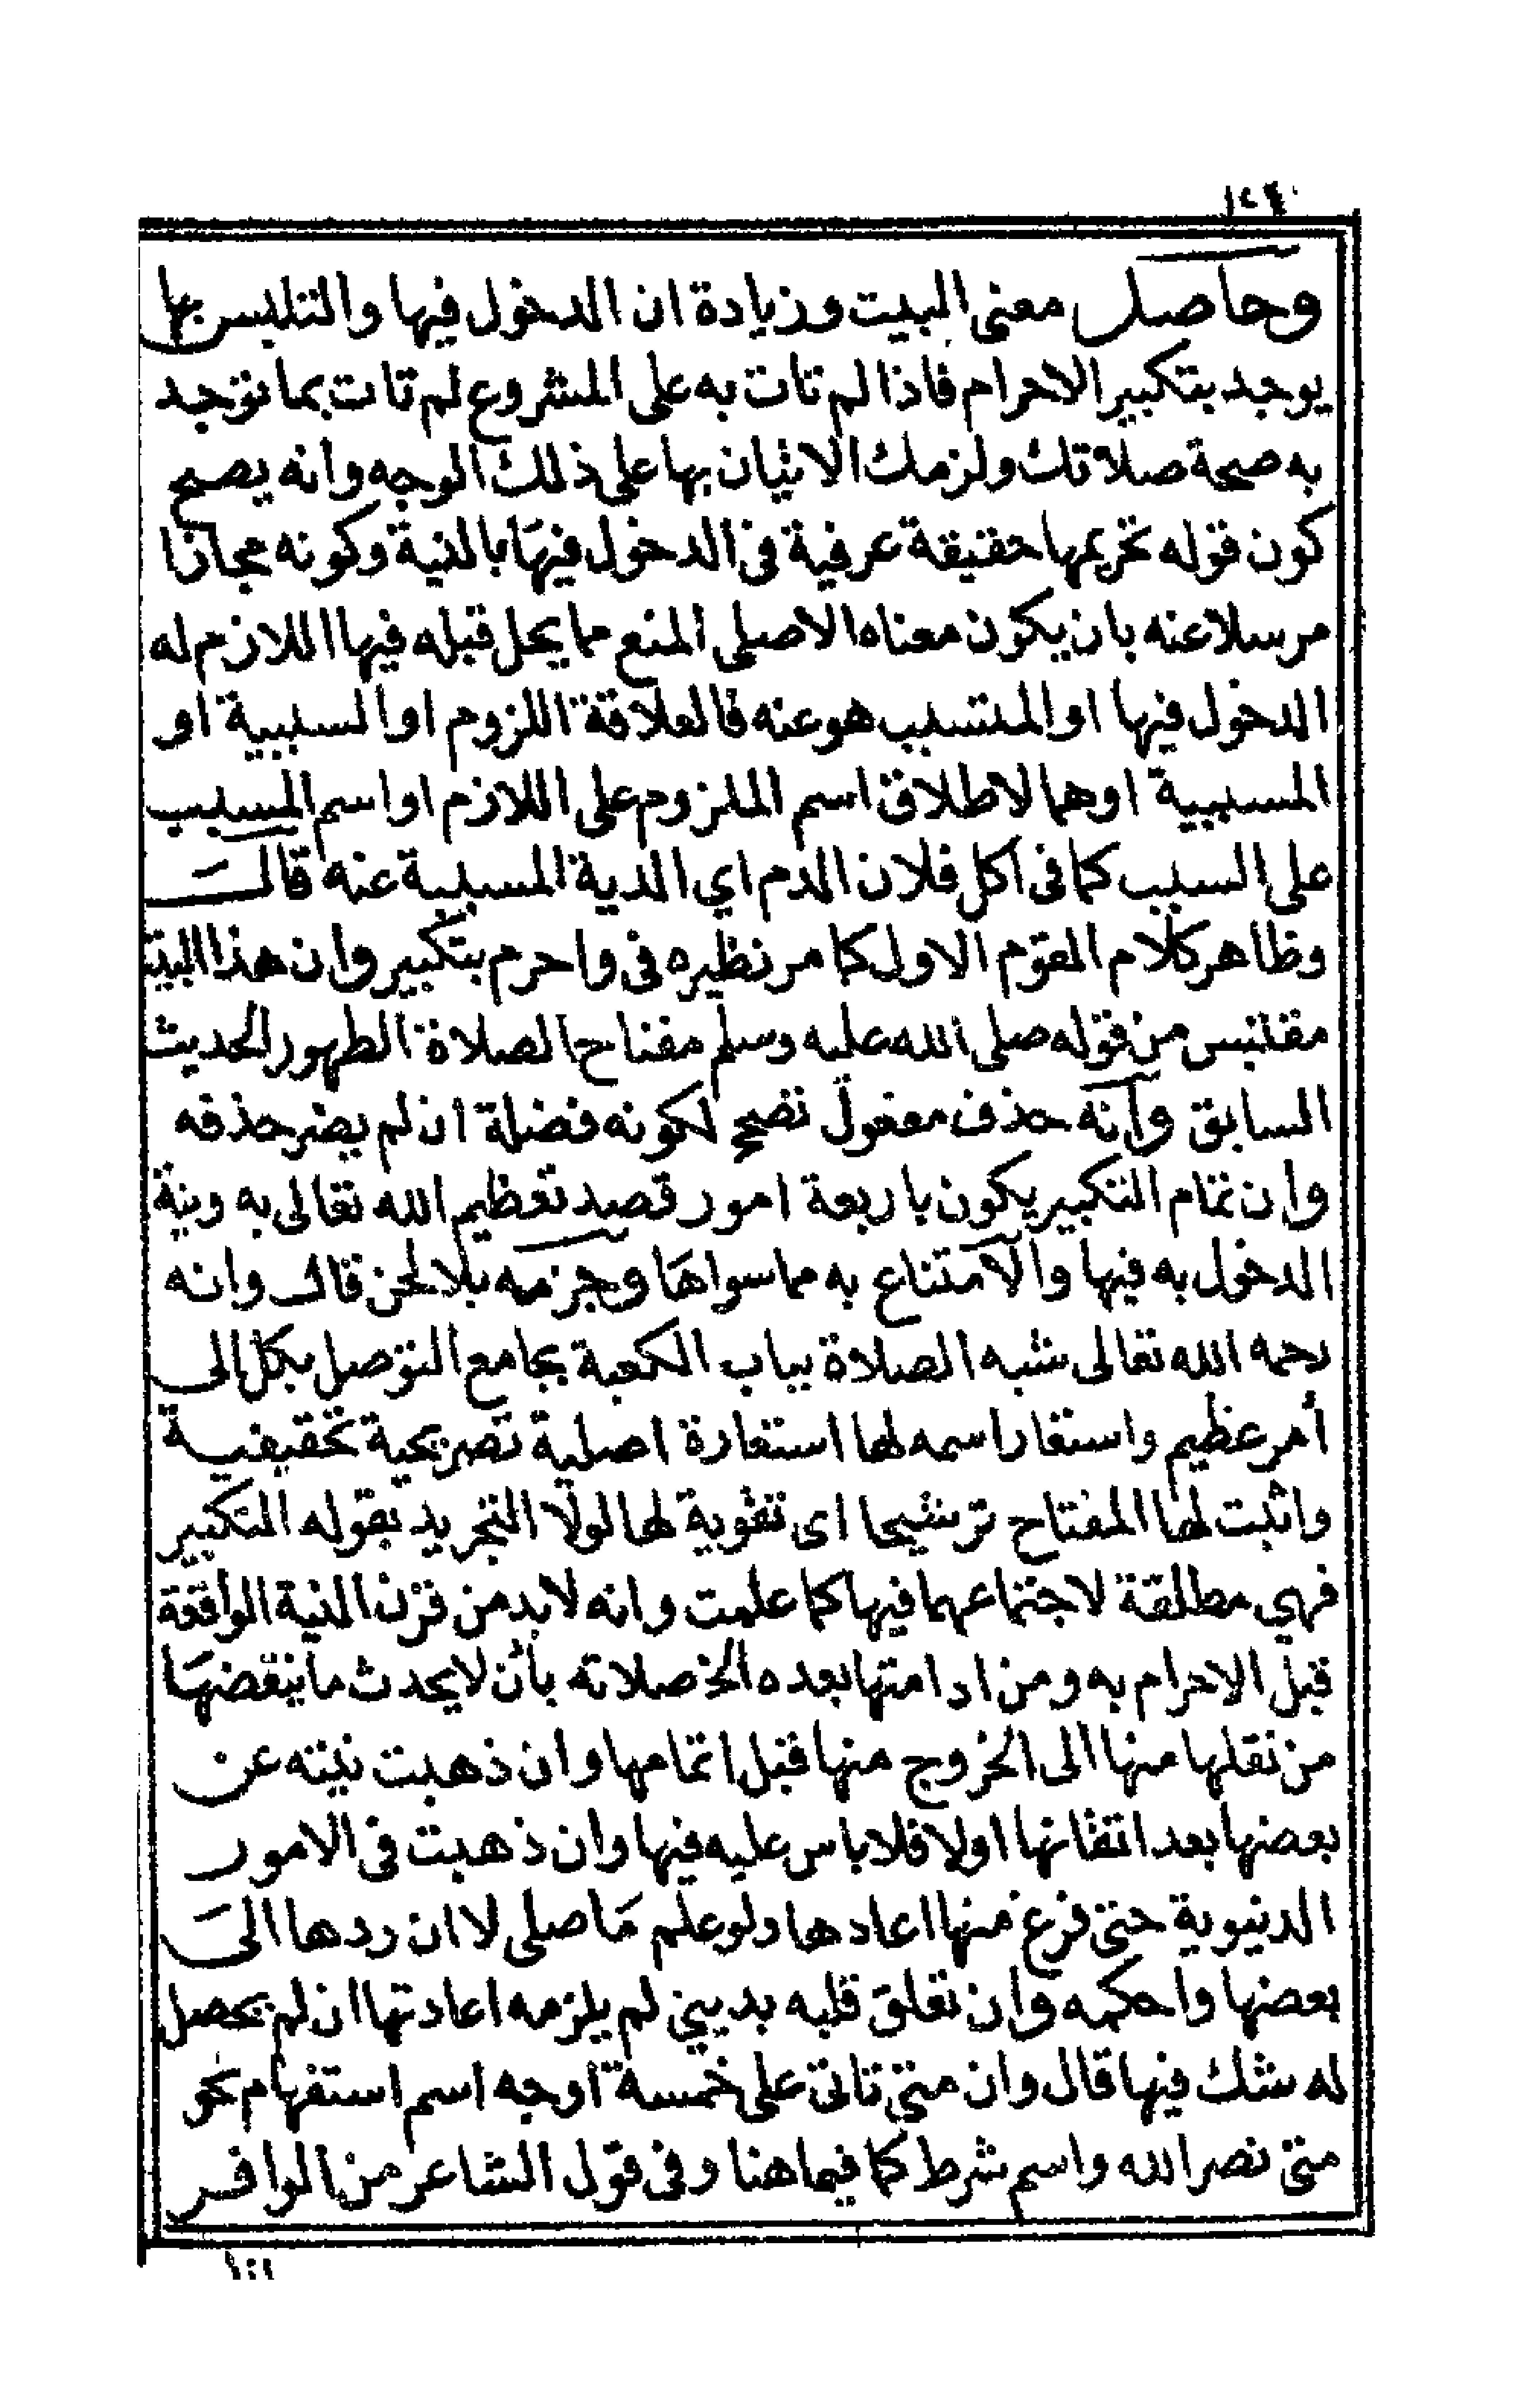 وحاصل معنى البيت وزيادة ان الدخول فيها والتلبس بها
يوجد بتكبير الاحرام فاذا لم تات به على المشروع لم تات بما توجد
به صحة صلاتك ولزمك الاتيان بها على ذلك الوجه وانه يصح
كون قوله تحريمها حقيقة عرفية فى الدخول فيها بالنية وكونه مجازا
مرسلا عنه بان يكون معناه الاصلى المنع مما يحل قبله فيها اللازم له
الدخول فيها او المتسبب هو عنه فالعلاقة اللزوم او السببية او
المسببية او هما لاطلاق اسم الملزوم على اللازم او اسم المسبب
على السبب كما فى اكل فلان الدم اي الدية المسببة عنه قال
وظاهر كلام المقوم الاول كما مر نظيره فى واحرم بتكبير وان هذا البيت
مقتبس من قوله صلى الله عليه وسلم مفتاح الصلاة الطهور الحديث
السابق وانه حذف مفعول تضح لكونه فضلة ان لم يضر حذفه
وان تمام التكبير يكون باربعة امور قصد تعظيم الله تعالى به ونية
الدخول به فيها والامتناع به مما سواها وجزمه بلا لحن قال وانه
رحمه الله تعالى شبه الصلاة بباب الكعبة بجامع التوصل بكل الى
أمر عظيم واستعار اسمه لها استعارة اصلية تصريحية تحقيقية
واثبت لها المفتاح ترشيحا اى تقوية لها لولا التجريد بقوله التكبير
فهي مطلقة لاجتماعهما فيها كما علمت وانه لابد من قرن النية الواقعة
قبل الاحرام به ومن ادامتها بعده الخ صلاته بأن لا يحدث ما ينقضها
من نقلها منها الى الخروج منها قبل اتمامها وان ذهبت نيته عن
بعضها بعد اتقانها اولا فلا باس عليه فيها وان ذهبت فى الامور
الدنيوية حتى فرغ منها اعادها ولو علم ما صلى لا ان ردها الى
بعضها واحكمه وان تعلق قلبه بديني لم يلزمه اعادتها ان لم يحصل
له شك فيها قال وان متى تاتى على خمسة اوجه اسم استفهام نحو
متى نصر الله واسم شرط كما فيما هنا وفى قول الشاعر من الوافر